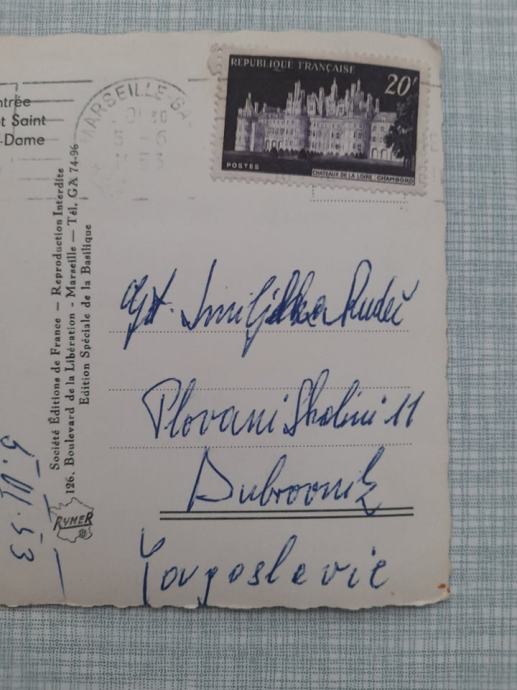 ntrée
t Saint
-Dame
MARSEILLE-GA
REPUBLIQUE FRANÇAISE
20f
POSTES
CHATEAUX DE LA LOIRE : CHAMBORD
Société Éditions de France — Reproduction Interdite
126, Boulevard de la Libération - Marseille — Tél. GA 74-96
Edition Spéciale de la Basilique
RYNER
5. VI. 53
Gđ. Smiljka Rudeč
Plovani Skalini 11
Dubrovnik
Yougoslavie